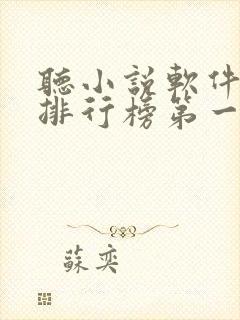 聽小說軟件
排行榜第一
蘇奕